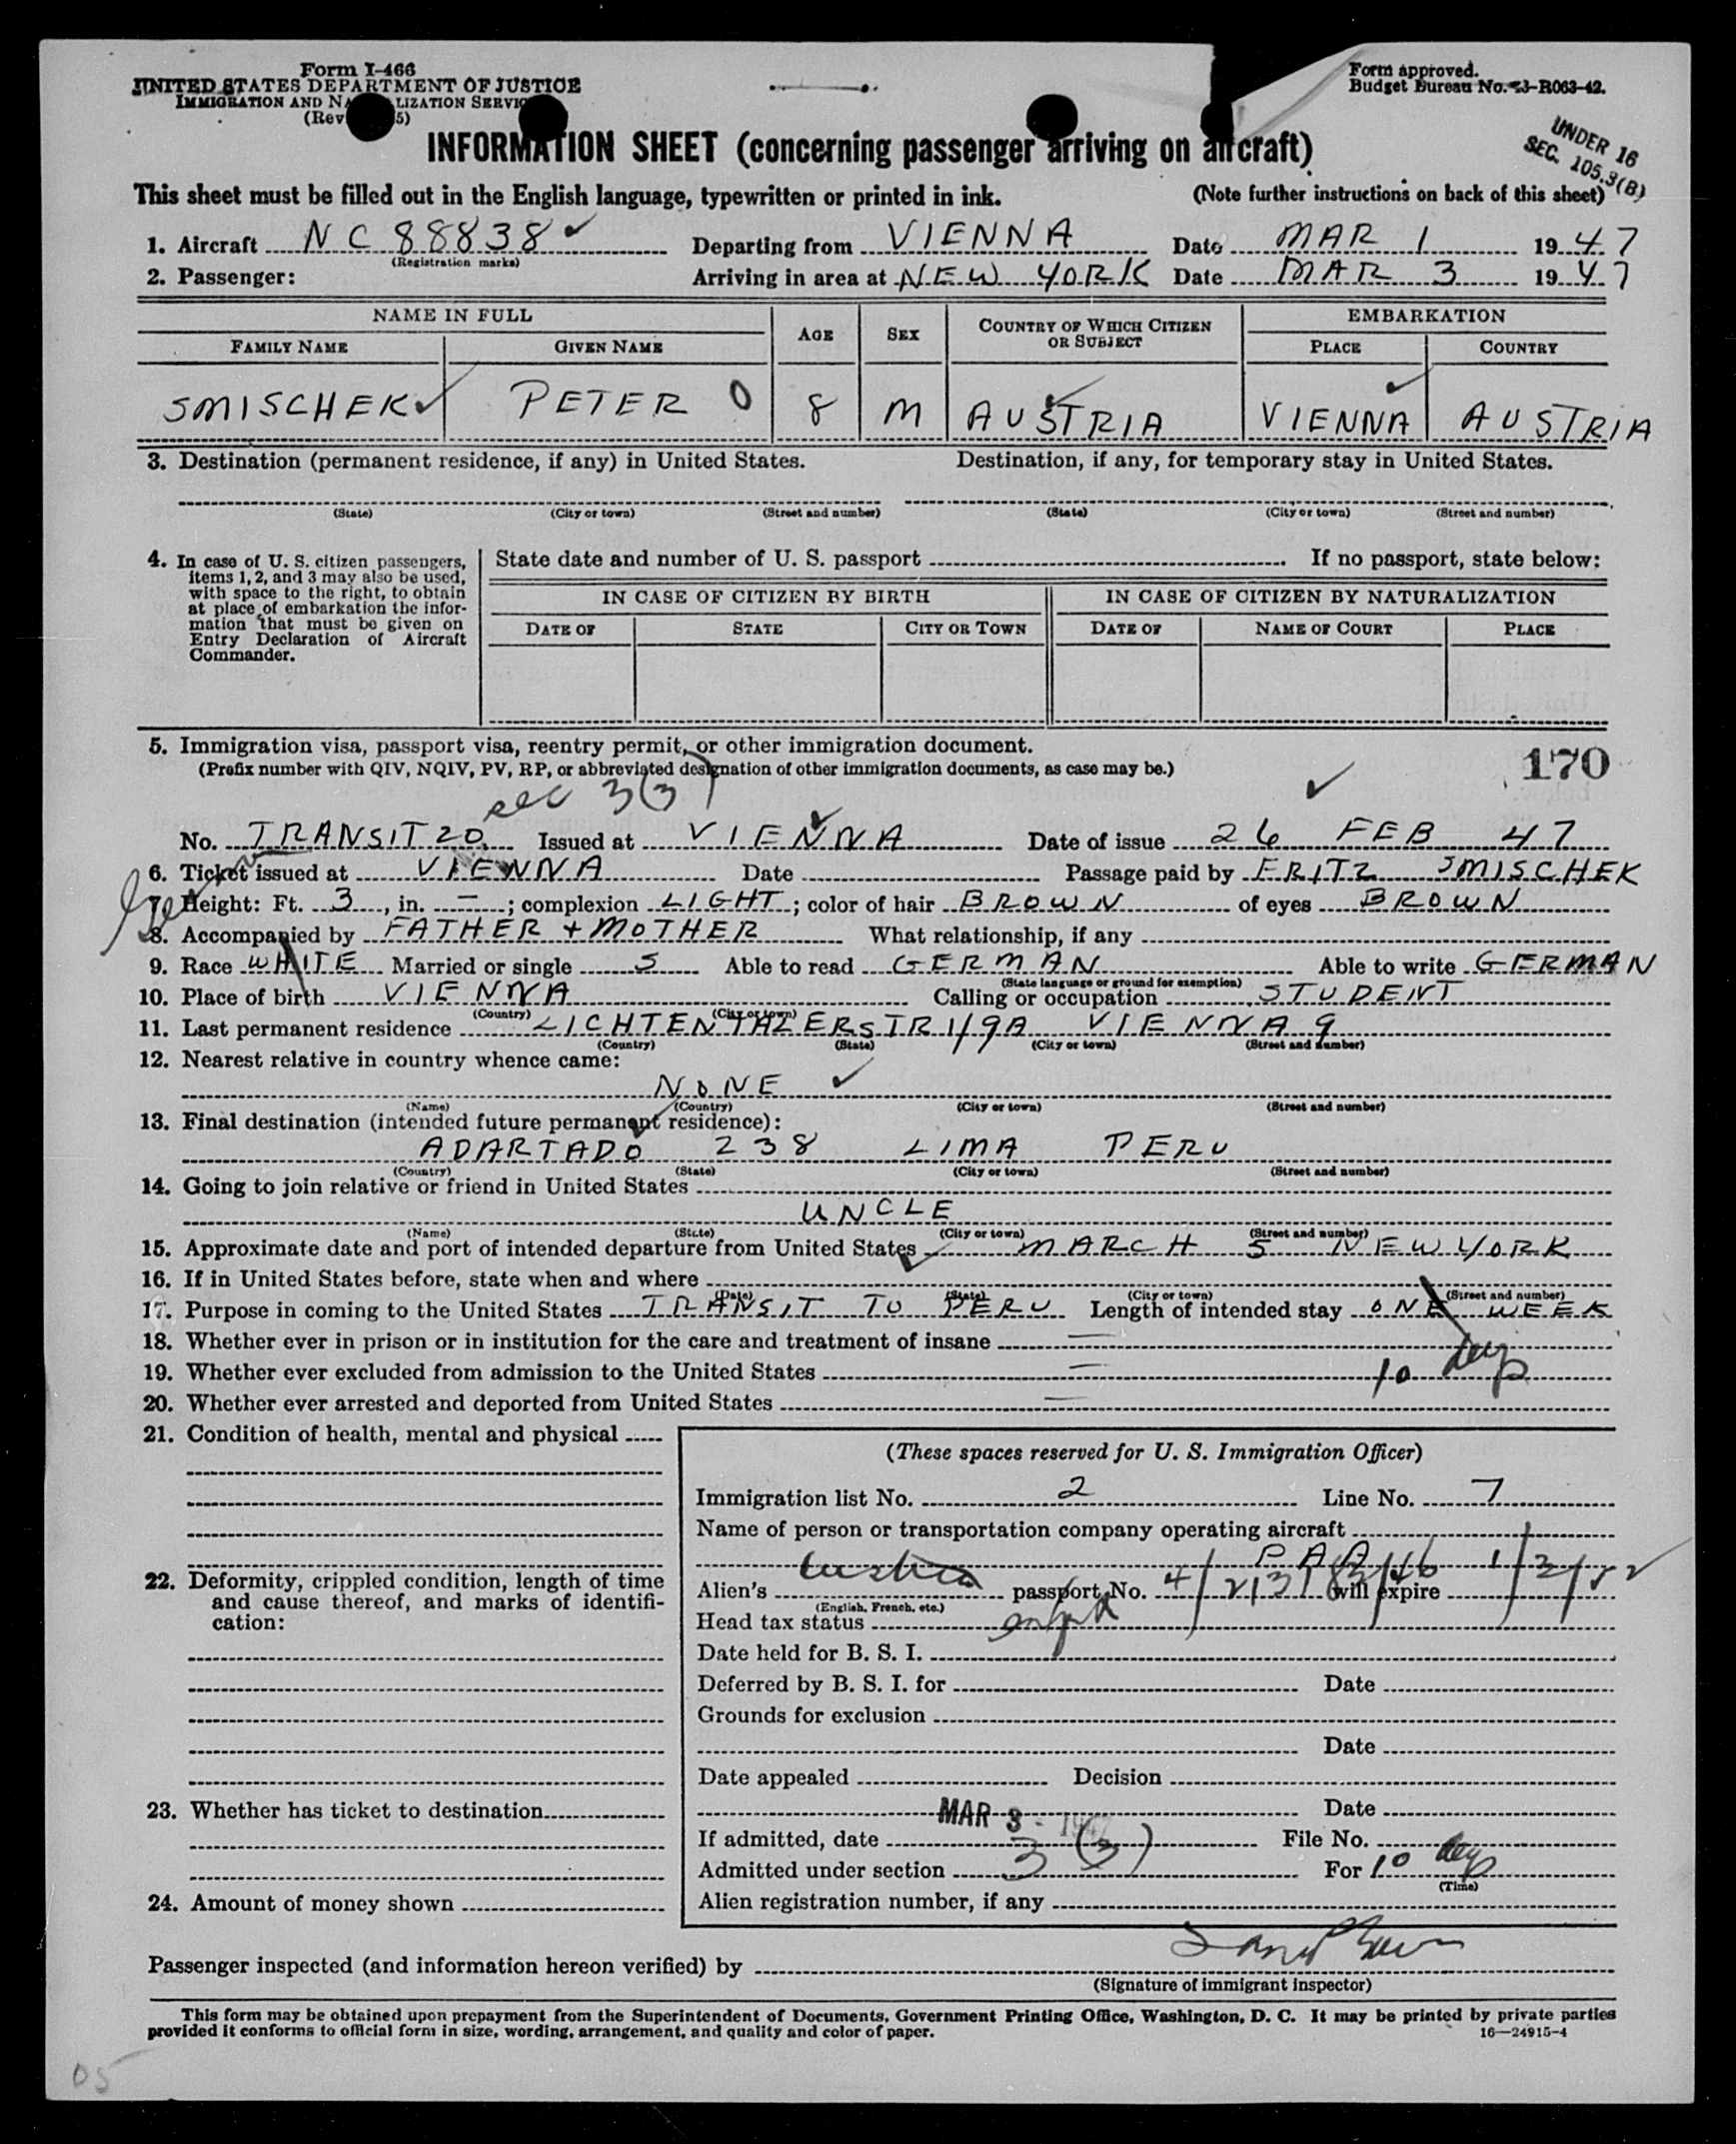 Form I-466
UNITED STATES DEPARTMENT OF JUSTICE
IMMIGRATION AND LIZATION SERVIC
(Rev 5)
Form approved.
Budget Bureau No. 43-R063-42.
UNDER 16
SEC. 105.3(B)
INFORMATION SHEET (concerning passenger arriving on aircraft)
This sheet must be filled out in the English language, typewritten or printed in ink. (Note further instructions on back of this sheet)
1. Aircraft NC 88838 Departing from VIENNA Date MAR 1 1947
(Registration marks)
2. Passenger: Arriving in area at NEW YORK Date MAR 3 1947
NAME IN FULL AGE SEX COUNTRY OF WHICH CITIZEN OR SUBJECT EMBARKATION
FAMILY NAME GIVEN NAME PLACE COUNTRY
SMISCHEK PETER 0 8 M AUSTRIA VIENNA AUSTRIA
3. Destination (permanent residence, if any) in United States. Destination, if any, for temporary stay in United States.
(State) (City or town) (Street and number) (State) (City or town) (Street and number)
4. In case of U. S. citizen passengers,
items 1, 2, and 3 may also be used,
with space to the right, to obtain
at place of embarkation the infor-
mation that must be given on
Entry Declaration of Aircraft
Commander.
State date and number of U. S. passport If no passport, state below:
IN CASE OF CITIZEN BY BIRTH IN CASE OF CITIZEN BY NATURALIZATION
DATE OF STATE CITY OR TOWN DATE OF NAME OF COURT PLACE
5. Immigration visa, passport visa, reentry permit, or other immigration document.
(Prefix number with QIV, NQIV, PV, RP, or abbreviated designation of other immigration documents, as case may be.)
170
sec 3(3)
No. TRANSIT 20 Issued at VIENNA Date of issue 26 FEB 47
6. Ticket issued at VIENNA Date Passage paid by FRITZ SMISCHEK
7. Height: Ft. 3, in. –; complexion LIGHT; color of hair BROWN of eyes BROWN
8. Accompanied by FATHER + MOTHER What relationship, if any
9. Race WHITE Married or single S Able to read GERMAN Able to write GERMAN
(State language or ground for exemption)
10. Place of birth VIENNA Calling or occupation STUDENT
(Country) (City or town)
11. Last permanent residence LICHTENTALERSTR 1/9A VIENNA 9
(Country) (State) (City or town) (Street and number)
12. Nearest relative in country whence came:
NONE
(Name) (Country) (City or town) (Street and number)
13. Final destination (intended future permanent residence):
ADARTADO 238 LIMA PERU
(Country) (State) (City or town) (Street and number)
14. Going to join relative or friend in United States
UNCLE
(Name) (State) (City or town) (Street and number)
15. Approximate date and port of intended departure from United States MARCH 5 NEW YORK
16. If in United States before, state when and where
(Date) (State) (City or town) (Street and number)
17. Purpose in coming to the United States TRANSIT TO PERU Length of intended stay ONE WEEK
18. Whether ever in prison or in institution for the care and treatment of insane —
19. Whether ever excluded from admission to the United States — 10 days
20. Whether ever arrested and deported from United States —
21. Condition of health, mental and physical
22. Deformity, crippled condition, length of time
and cause thereof, and marks of identifi-
cation:
23. Whether has ticket to destination
24. Amount of money shown
(These spaces reserved for U. S. Immigration Officer)
Immigration list No. 2 Line No. 7
Name of person or transportation company operating aircraft
PAA
Alien's Austrian passport No. will expire 1/2/52
(English, French, etc.)
Head tax status
Date held for B. S. I.
Deferred by B. S. I. for Date
Grounds for exclusion
Date
Date appealed Decision
Date
If admitted, date MAR 3 - 1947 File No.
Admitted under section 3 (3) For 10 days
(Time)
Alien registration number, if any
Passenger inspected (and information hereon verified) by
(Signature of immigrant inspector)
This form may be obtained upon prepayment from the Superintendent of Documents, Government Printing Office, Washington, D. C. It may be printed by private parties
provided it conforms to official form in size, wording, arrangement, and quality and color of paper. 16—24915-4
05